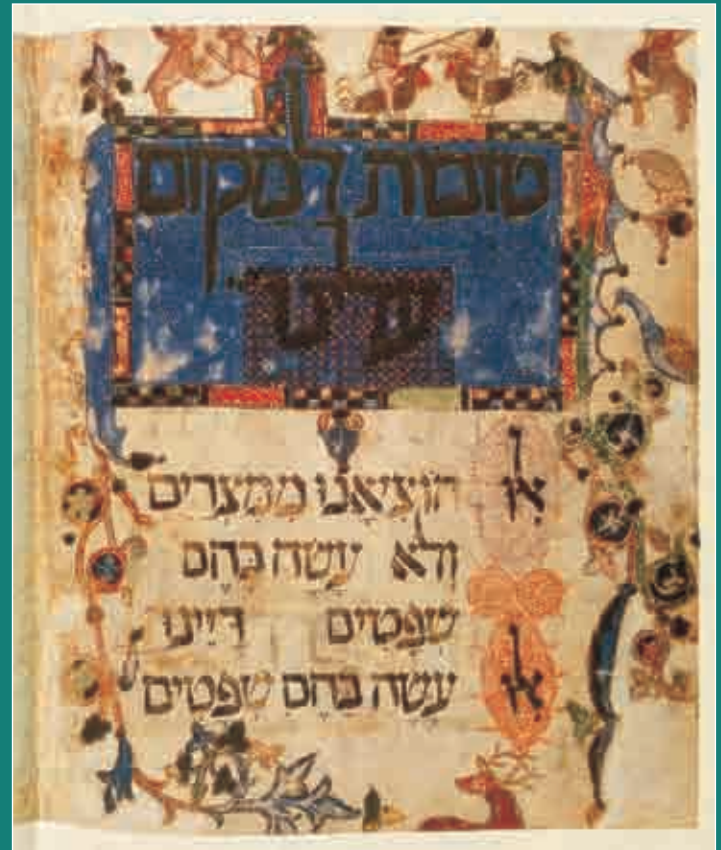 טובות למקום
עלינו
אלו הוציאנו ממצרים
ולא עשה בהם
שפטים דיינו
אלו עשה בהם שפטים